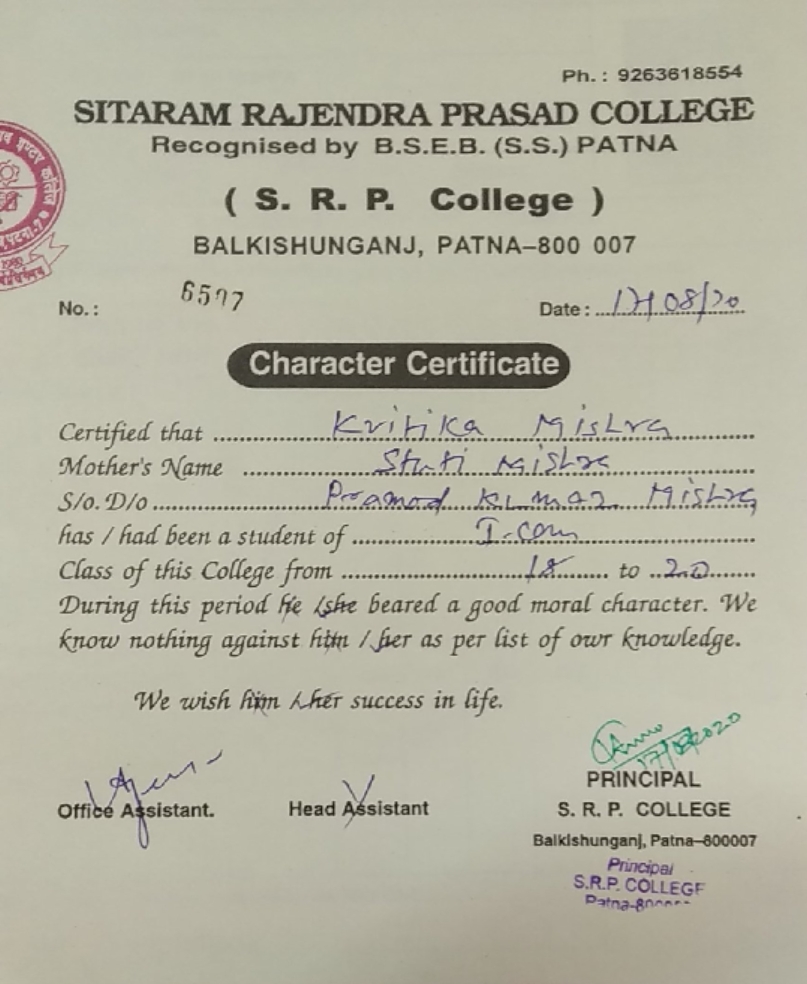 Ph. : 9263618554
SITARAM RAJENDRA PRASAD COLLEGE
Recognised by B.S.E.B. (S.S.) PATNA
( S. R. P. College )
BALKISHUNGANJ, PATNA–800 007
No. : 6597
Date : 17/08/20
Character Certificate
Certified that Kritika Mishra
Mother's Name Stuti Mishra
S/o. D/o Pramod Kumar Mishra
has / had been a student of I.com
Class of this College from 18 to 20
During this period he /she beared a good moral character. We
know nothing against him / her as per list of owr knowledge.
We wish him /her success in life.
17/08/2020
Office Assistant. Head Assistant PRINCIPAL
S. R. P. COLLEGE
Balkishunganj, Patna–800007
Principal
S.R.P. COLLEGE